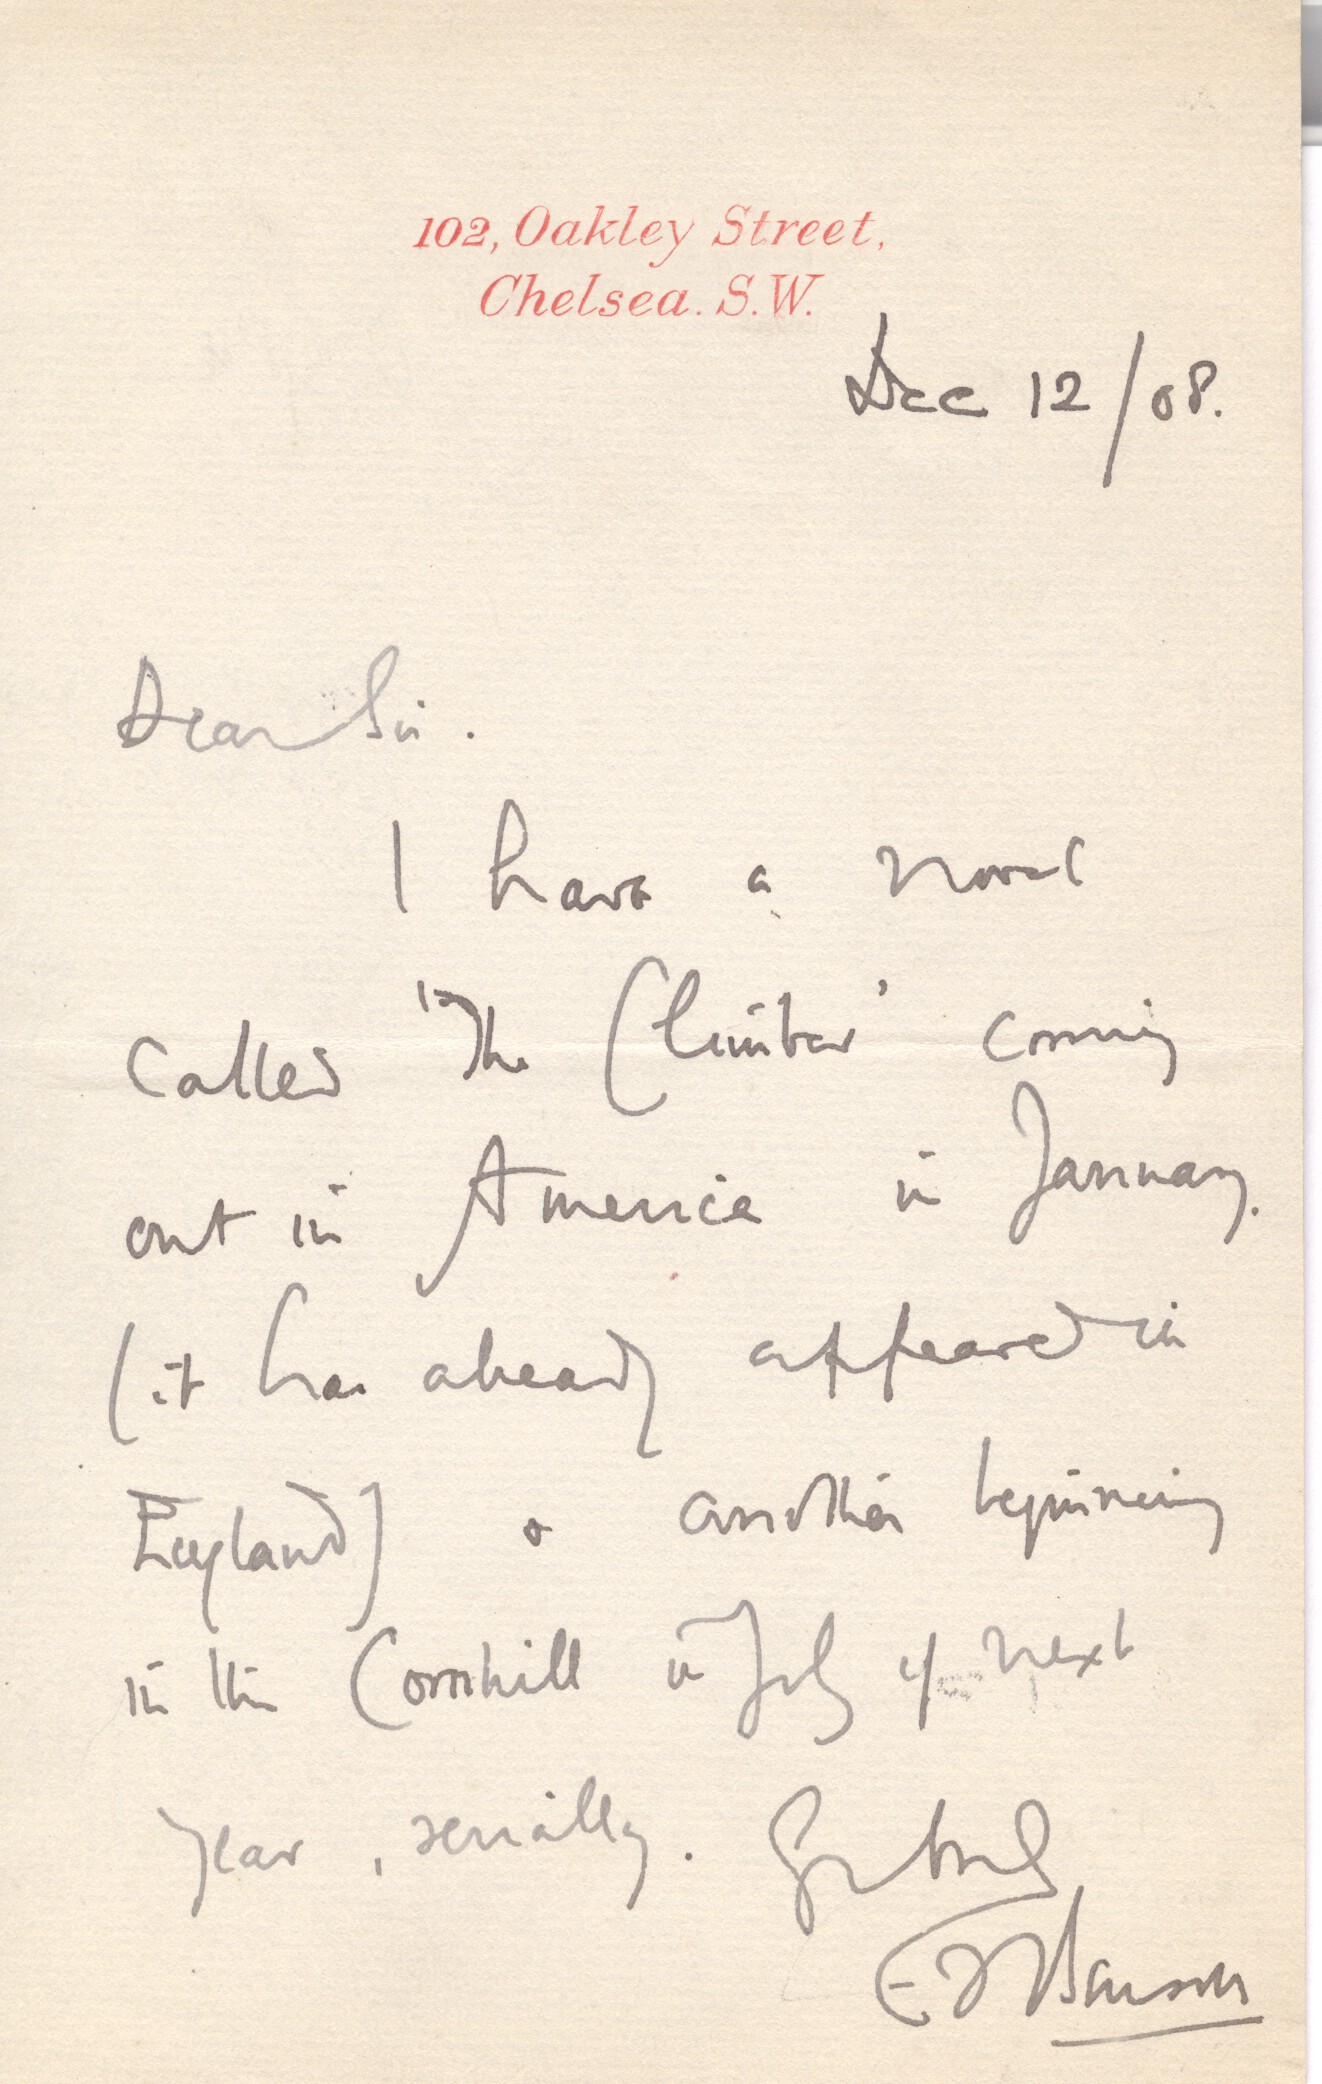 102, Oakley Street,
Chelsea. S.W.
Dec 12/08.
Dear Sir.
I have a novel
called 'The Climber' coming
out in America in January.
(it has already appeared in
England) & another beginning
in the Cornhill in July of next
year, serially.
E F Benson